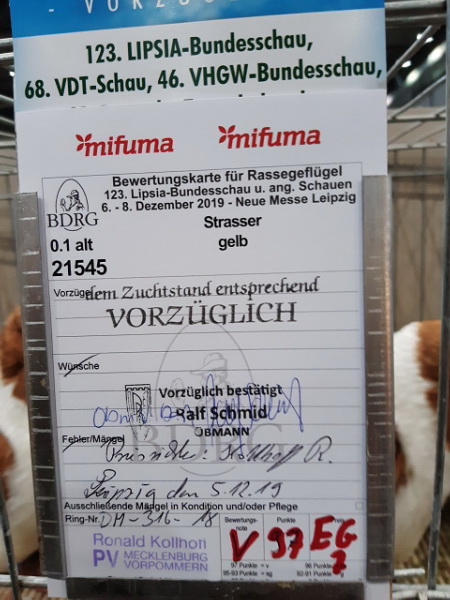 - VORZU
123. LIPSIA-Bundesschau,
68. VDT-Schau, 46. VHGW-Bundesschau,
mifuma mifuma
Bewertungskarte für Rassegeflügel
123. Lipsia-Bundesschau u. ang. Schauen
6. - 8. Dezember 2019 - Neue Messe Leipzig
BDRG
Strasser
0.1 alt gelb
21545
Vorzüge
dem Zuchtstand entsprechend
VORZÜGLICH
Wünsche
Vorzüglich bestätigt
Ralf Schmid
OBMANN
Fehler/Mängel
BDRG
Preisrichter: Kollhoff R.
Leipzig den 5.12.19
Ausschließende Mängel in Kondition und/oder Pflege
Ring-Nr. DH-316-18
Bewertungs-
note
Punkte
V 97 EG
Ronald Kollhoff
PV MECKLENBURG
VORPOMMERN
97 Punkte = v 96 Punkte